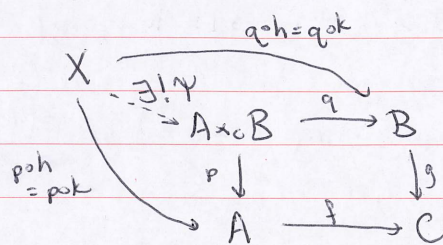 q∘h=q∘k
X
∃!Ψ
A×_C B q B
p∘h
=p∘k
p g
A f C